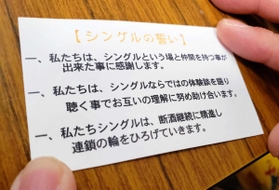 【シングルの誓い】
一、私たちは、シングルという場と仲間を持つ事が
出来た事に感謝します。
一、私たちは、シングルならではの体験談を語り
聴く事でお互いの理解に努め助け合います。
一、私たちシングルは、断酒継続に精進し
連鎖の輪をひろげていきます。